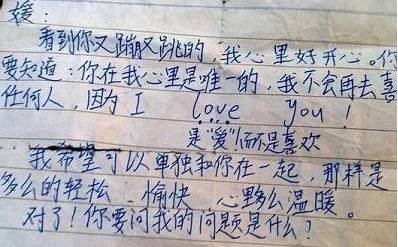 媛：
看到你又蹦又跳的，我心里好开心。你
要知道：你在我心里是唯一的，我不会再去喜
任何人，因为 I love you！
是“爱”而不是喜欢
我希望可以单独和你在一起，那样是
多么的轻松、愉快 心里多么温暖。
对了！你要问我的问题是什么？